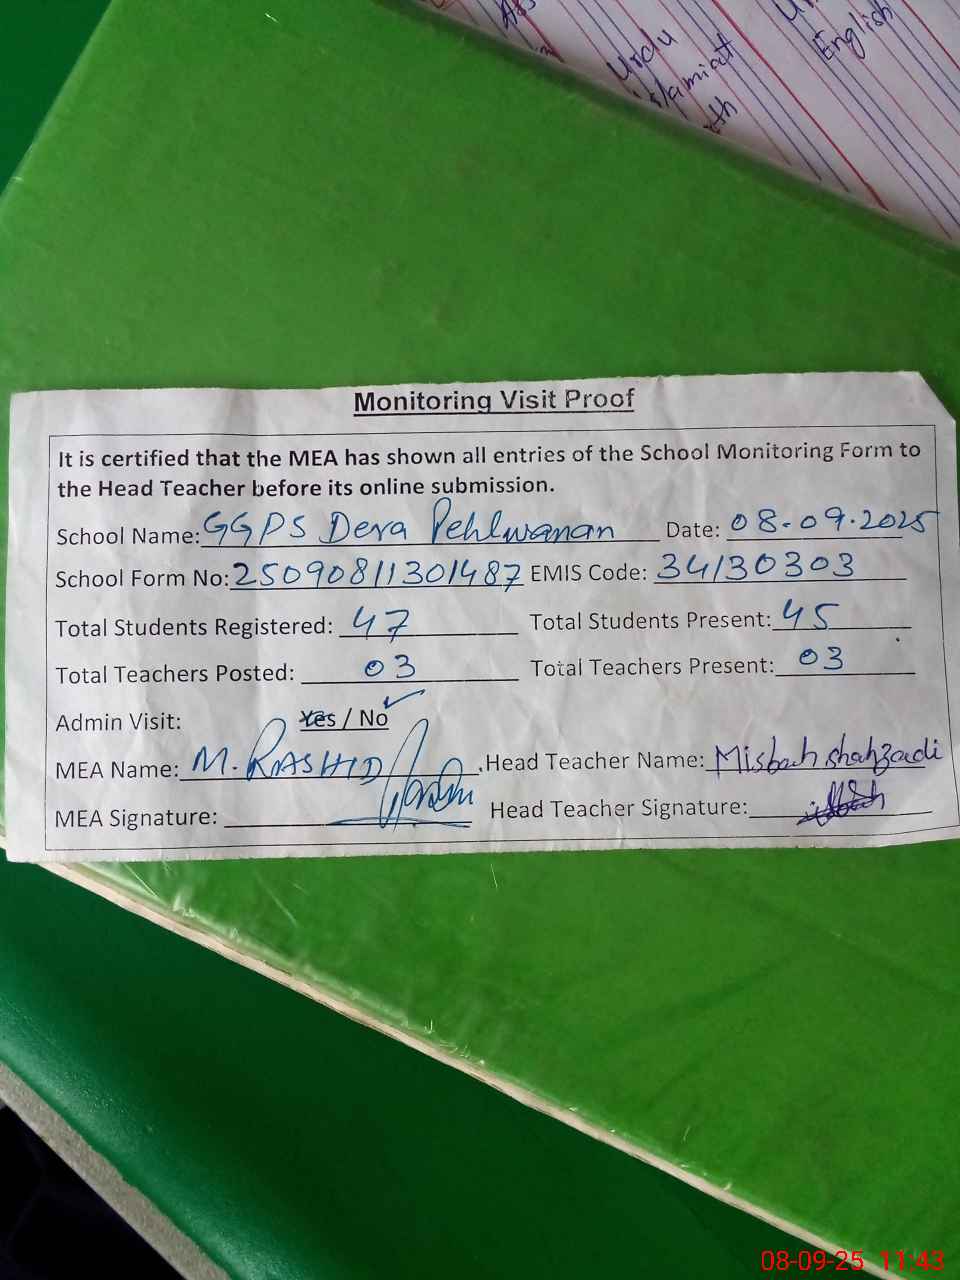 Urdu
islamiat
English
Monitoring Visit Proof
It is certified that the MEA has shown all entries of the School Monitoring Form to
the Head Teacher before its online submission.
School Name: GGPS Dera Pehlwanan Date: 08-09-2025
School Form No: 25090811301487 EMIS Code: 34130303
Total Students Registered: 47 Total Students Present: 45
Total Teachers Posted: 03 Total Teachers Present: 03
Admin Visit: Yes / No ✓
MEA Name: M. RASHID Head Teacher Name: Misbah shahzadi
MEA Signature: Head Teacher Signature:
08-09-25 11:43